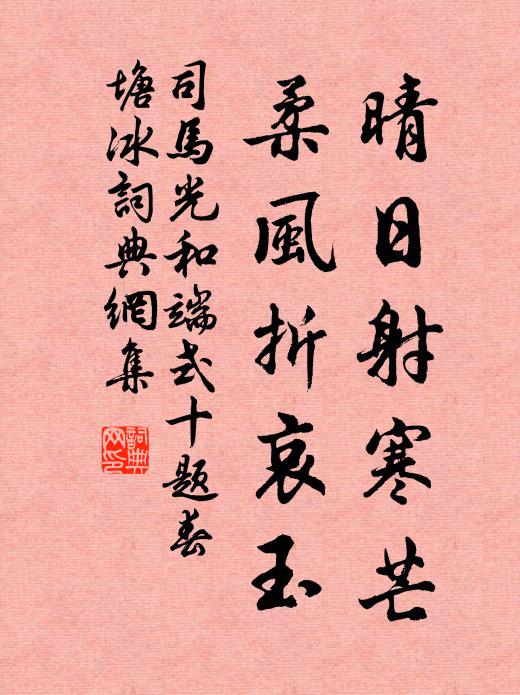 晴日射寒芒
柔風折哀玉
司馬光和端式十題春
塘冰詞典網集
詞典網印